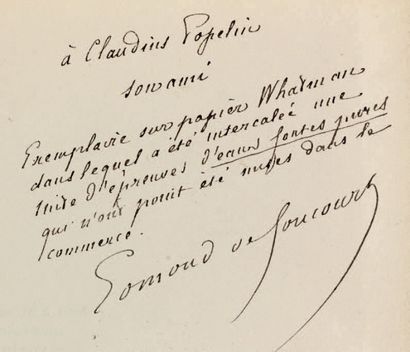 à Claudius Popelin
son ami
Exemplaire sur papier Whatman
dans lequel a été intercalée une
suite d'épreuves d'eaux fortes pures
qui n'ont point été mises dans le
commerce.
Edmond de Goncourt